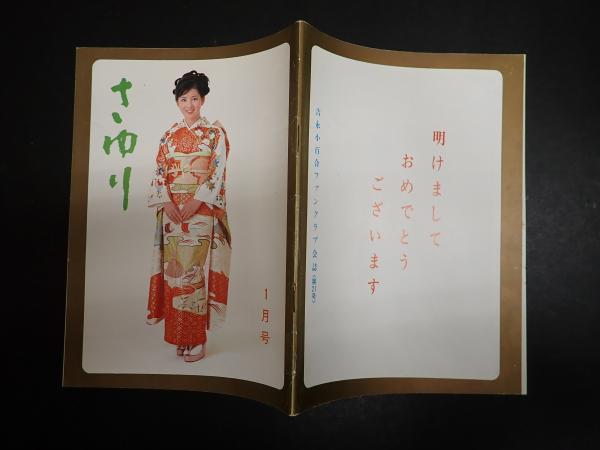 さゆり
1月号
吉永小百合ファンクラブ会誌(第21号)
明けまして
おめでとう
ございます